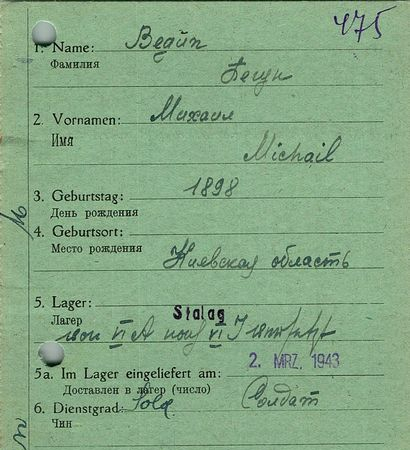 475
1. Name:
Фамилия
2. Vornamen: Михаил
Имя
Michail
3. Geburtstag: 1898
День рождения
4. Geburtsort:
Место рождения
Киевская область
5. Lager: Stalag
Лагерь
von VI A nach VI J versetzt
5a. Im Lager eingeliefert am: 2. MRZ. 1943
Доставлен в лагер (число)
6. Dienstgrad: Sold Солдат
Чин